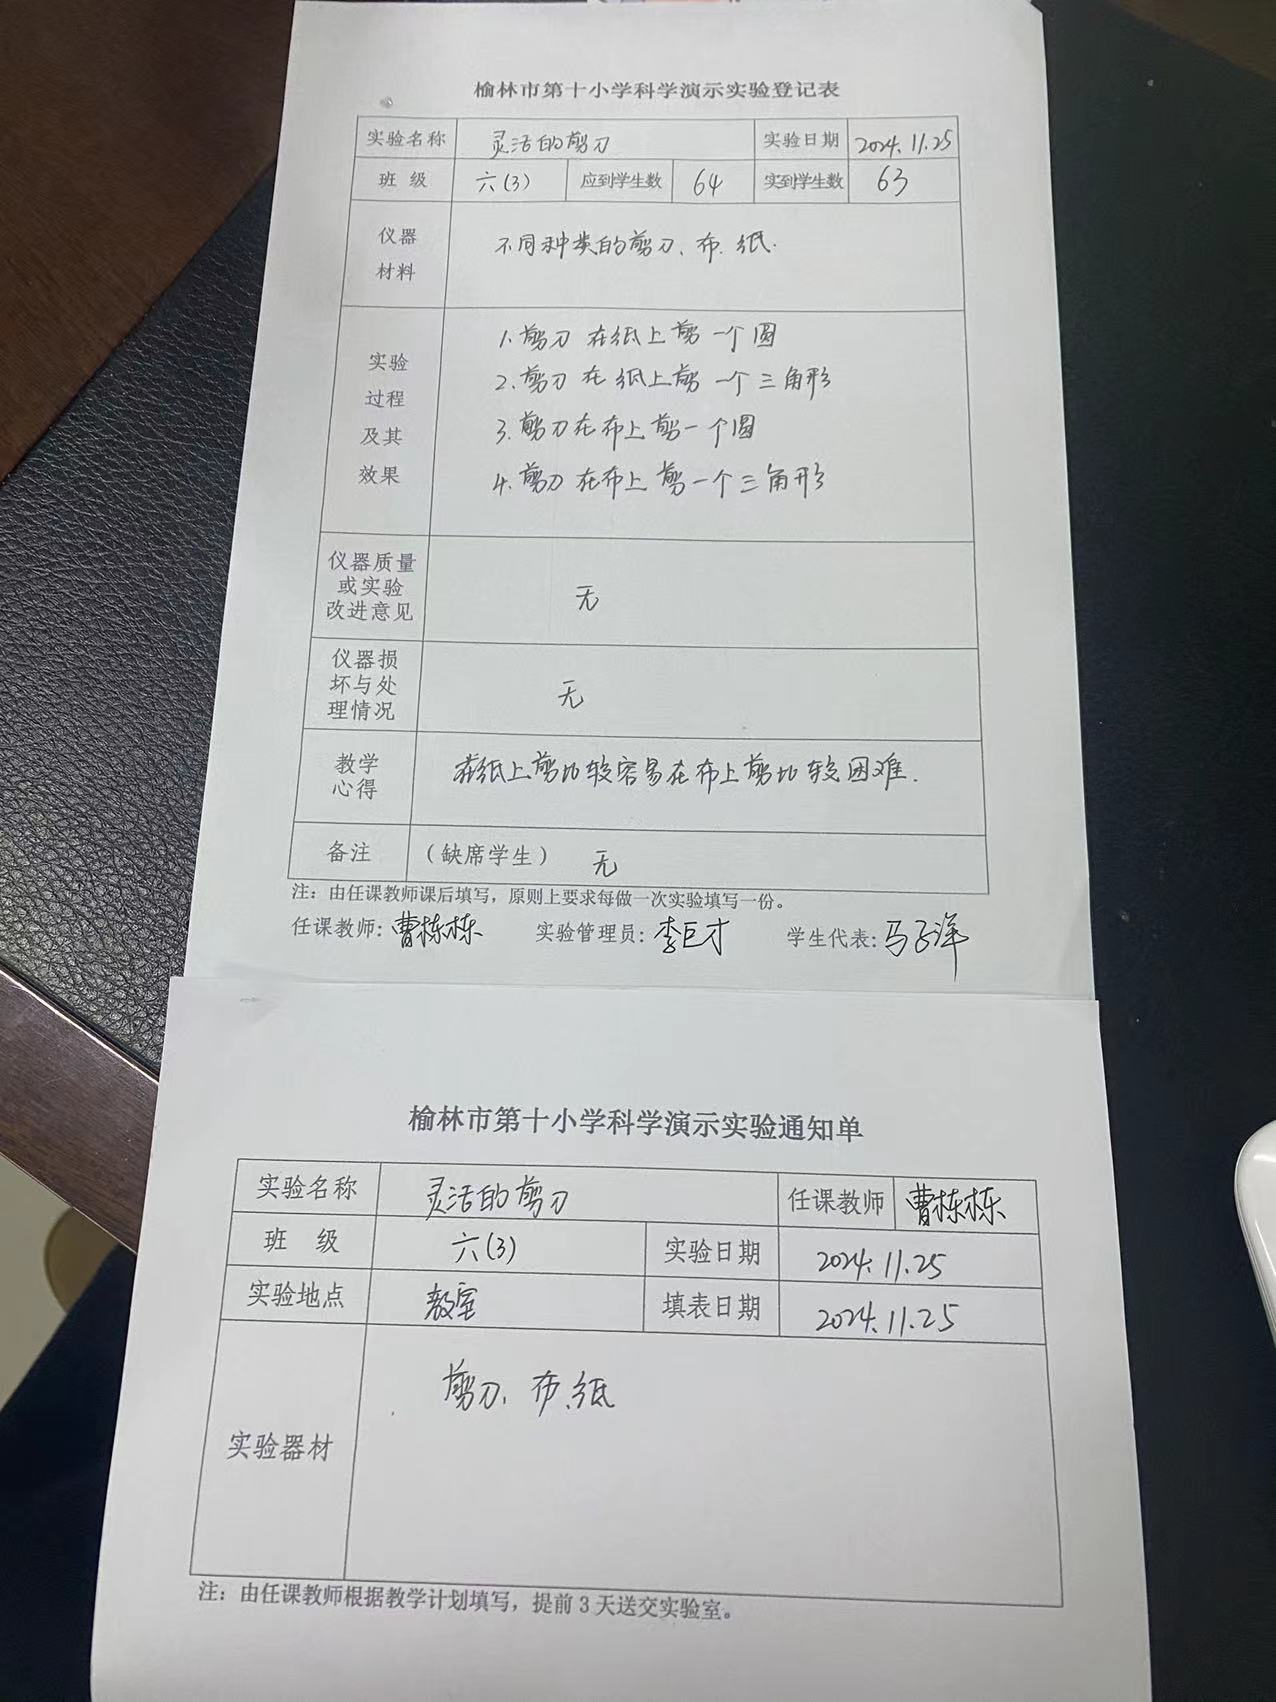 榆林市第十小学科学演示实验登记表
实验名称 灵活的剪刀 实验日期 2024.11.25
班 级 六(3) 应到学生数 64 实到学生数 63
仪器
材料
不同种类的剪刀、布、纸.
实验
过程
及其
效果
1.剪刀在纸上剪一个圆
2.剪刀在纸上剪一个三角形
3.剪刀在布上剪一个圆
4.剪刀在布上剪一个三角形
仪器质量
或实验
改进意见
无
仪器损
坏与处
理情况
无
教学
心得
在纸上剪比较容易在布上剪比较困难.
备注 (缺席学生) 无
注：由任课教师课后填写，原则上要求每做一次实验填写一份。
任课教师:曹栋栋 实验管理员:李巨才 学生代表:马子洋
榆林市第十小学科学演示实验通知单
实验名称 灵活的剪刀 任课教师 曹栋栋
班 级 六(3) 实验日期 2024.11.25
实验地点 教室 填表日期 2024.11.25
实验器材 剪刀、布、纸
注：由任课教师根据教学计划填写，提前3天送交实验室。